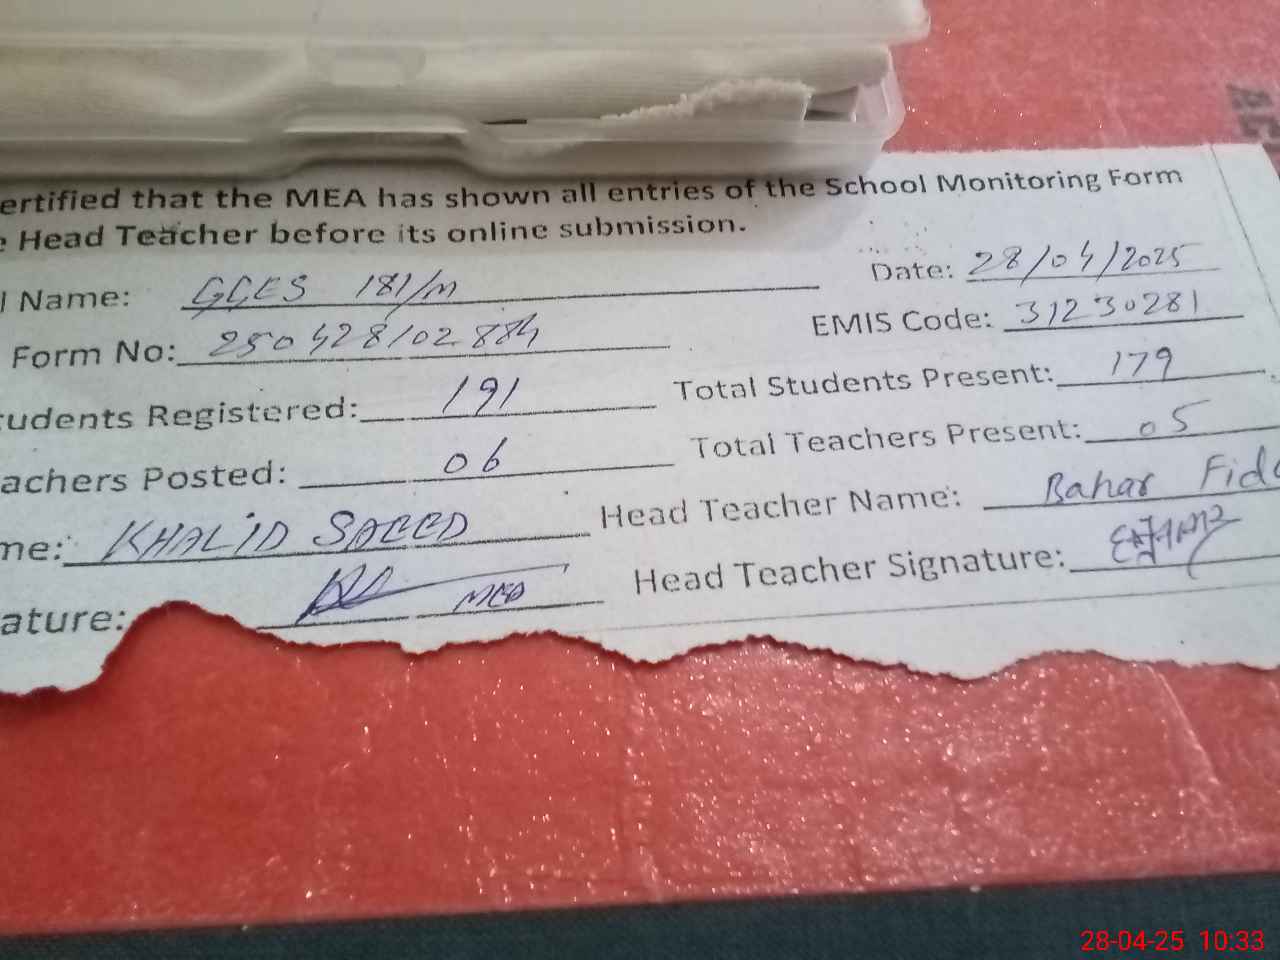 ertified that the MEA has shown all entries of the School Monitoring Form
e Head Teacher before its online submission.
l Name: GGES 181/M Date: 28/04/2025
Form No: 250428102884 EMIS Code: 31230281
tudents Registered: 191 Total Students Present: 179
achers Posted: 06 Total Teachers Present: 05
me: KHALID SAEED Head Teacher Name: Bahar Fida
ature: MEA Head Teacher Signature:
28-04-25 10:33